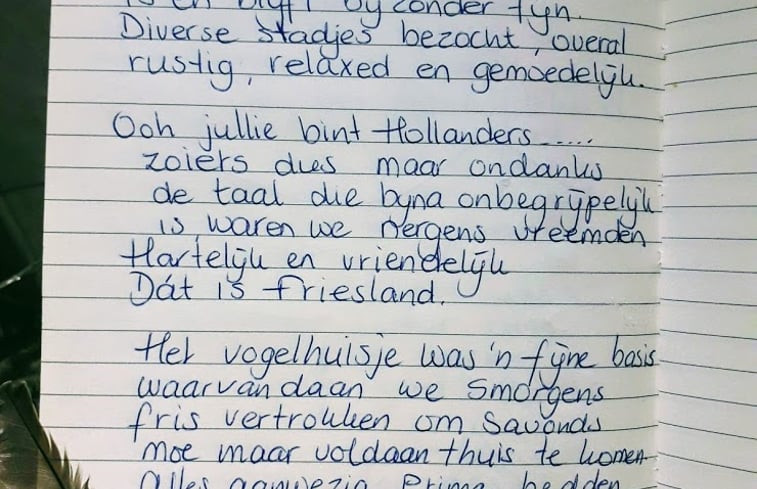 is en blijft byzonder fyn.
Diverse stadjes bezocht, overal
rustig, relaxed en gemoedelijk.
Ooh jullie bint Hollanders......
zoiets dus maar ondanks
de taal die byna onbegrijpelijk
is waren we nergens vreemden
Hartelijk en vriendelijk
Dát is Friesland.
Het vogelhuisje was 'n fijne basis
waarvandaan we Smorgens
fris vertrokken om Savonds
moe maar voldaan thuis te komen.
Alles aanwezig Prima bedden